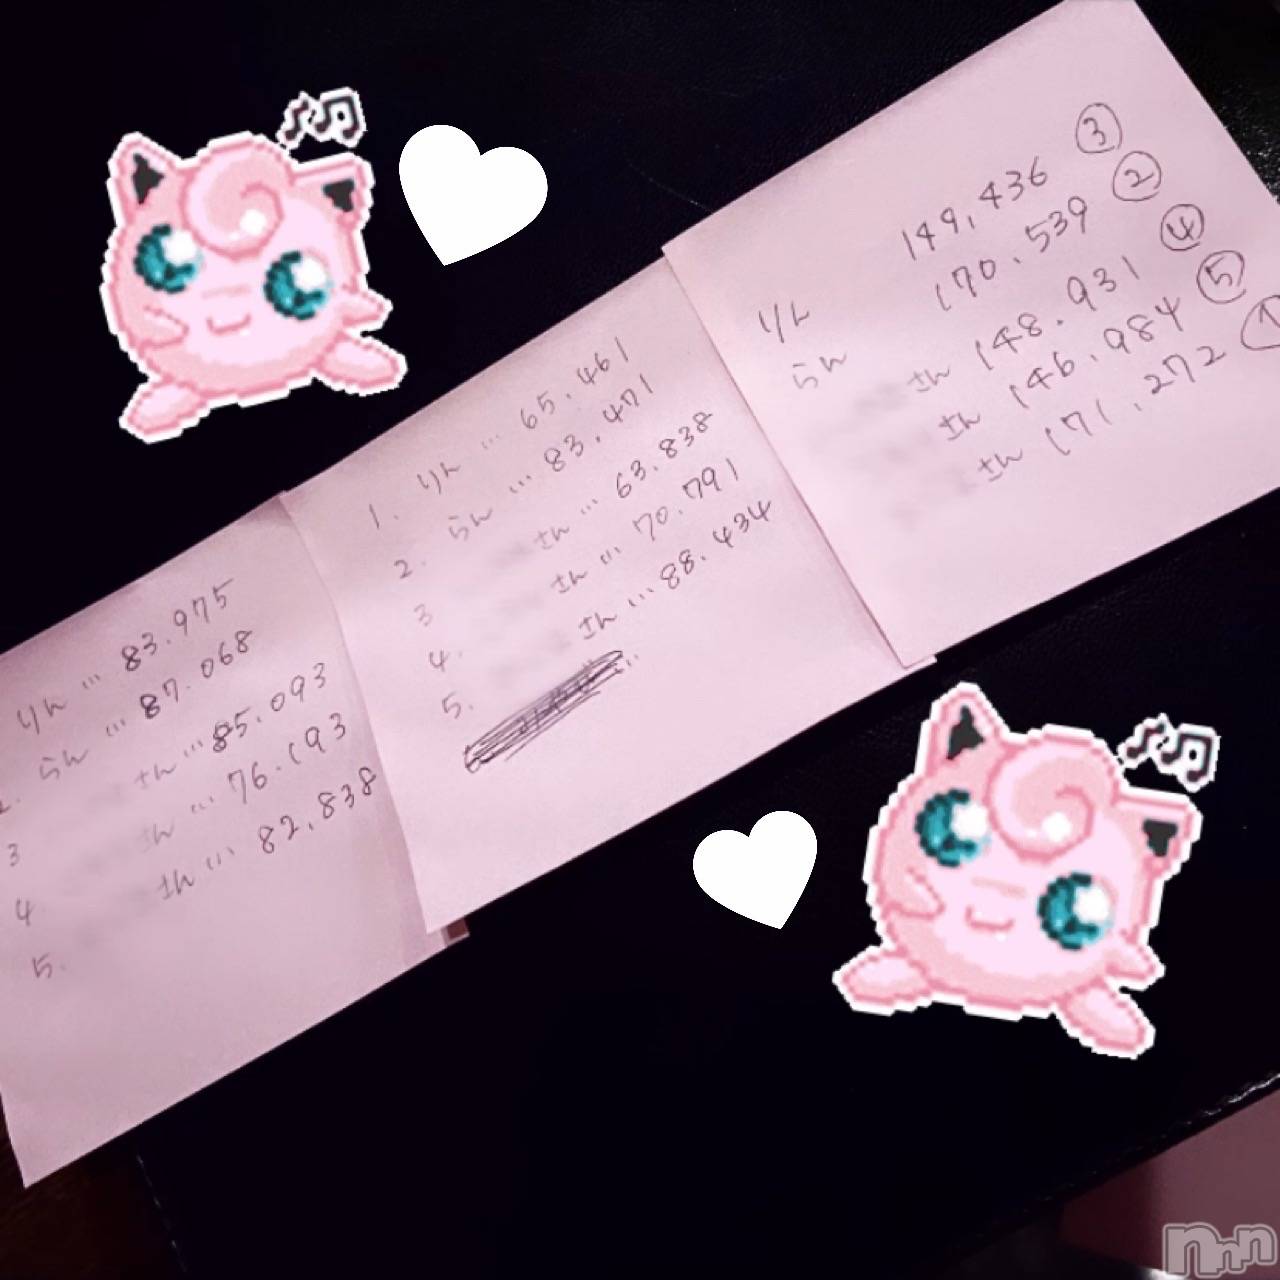 りん … 83.975
2. らん … 87.068
3 さん … 85.093
4 さん … 76.193
5. さん … 82.838
1. りん … 65.461
2. らん … 83.471
3 さん … 63.838
4. さん … 70.791
5. さん … 88.434
りん 149,436 ③
らん 170.539 ②
さん 148.931 ④
さん 146.984 ⑤
さん 171.272 ①
nnn